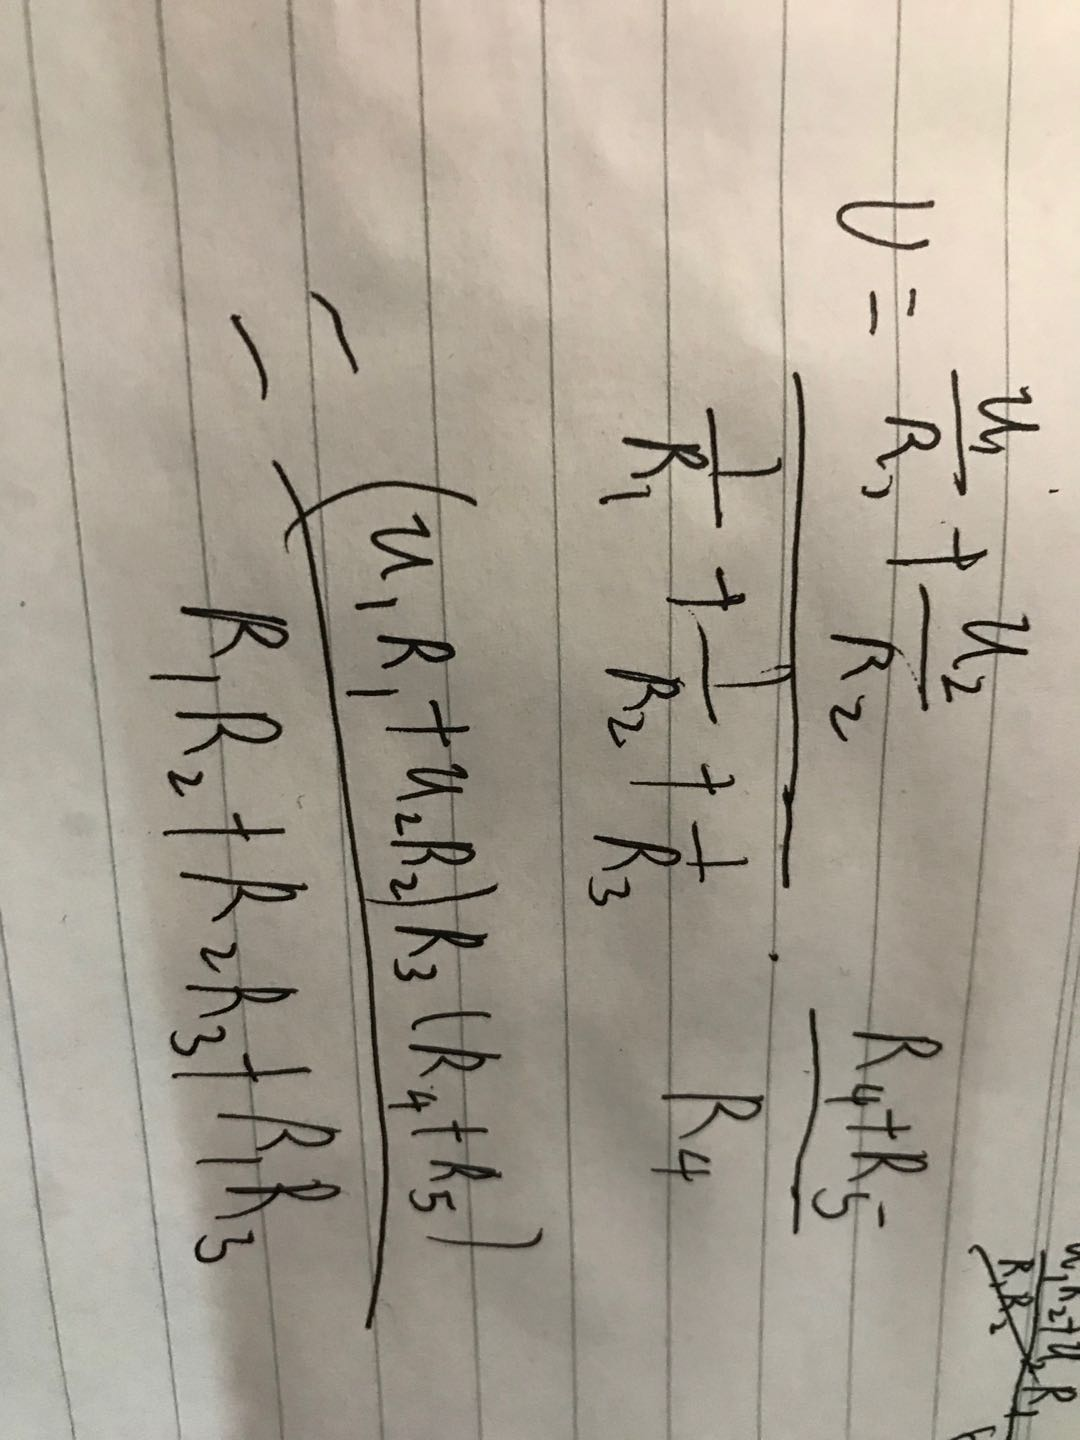 U = u₁/R₁ + u₂/R₂ / 1/R₁ + 1/R₂ + 1/R₃ · R₄+R₅ / R₄
= (u₁R₁+u₂R₂)R₃(R₄+R₅) / R₁R₂+R₂R₃+R₁R₃
u₁R₂+u₂R₁ / R₁R₂